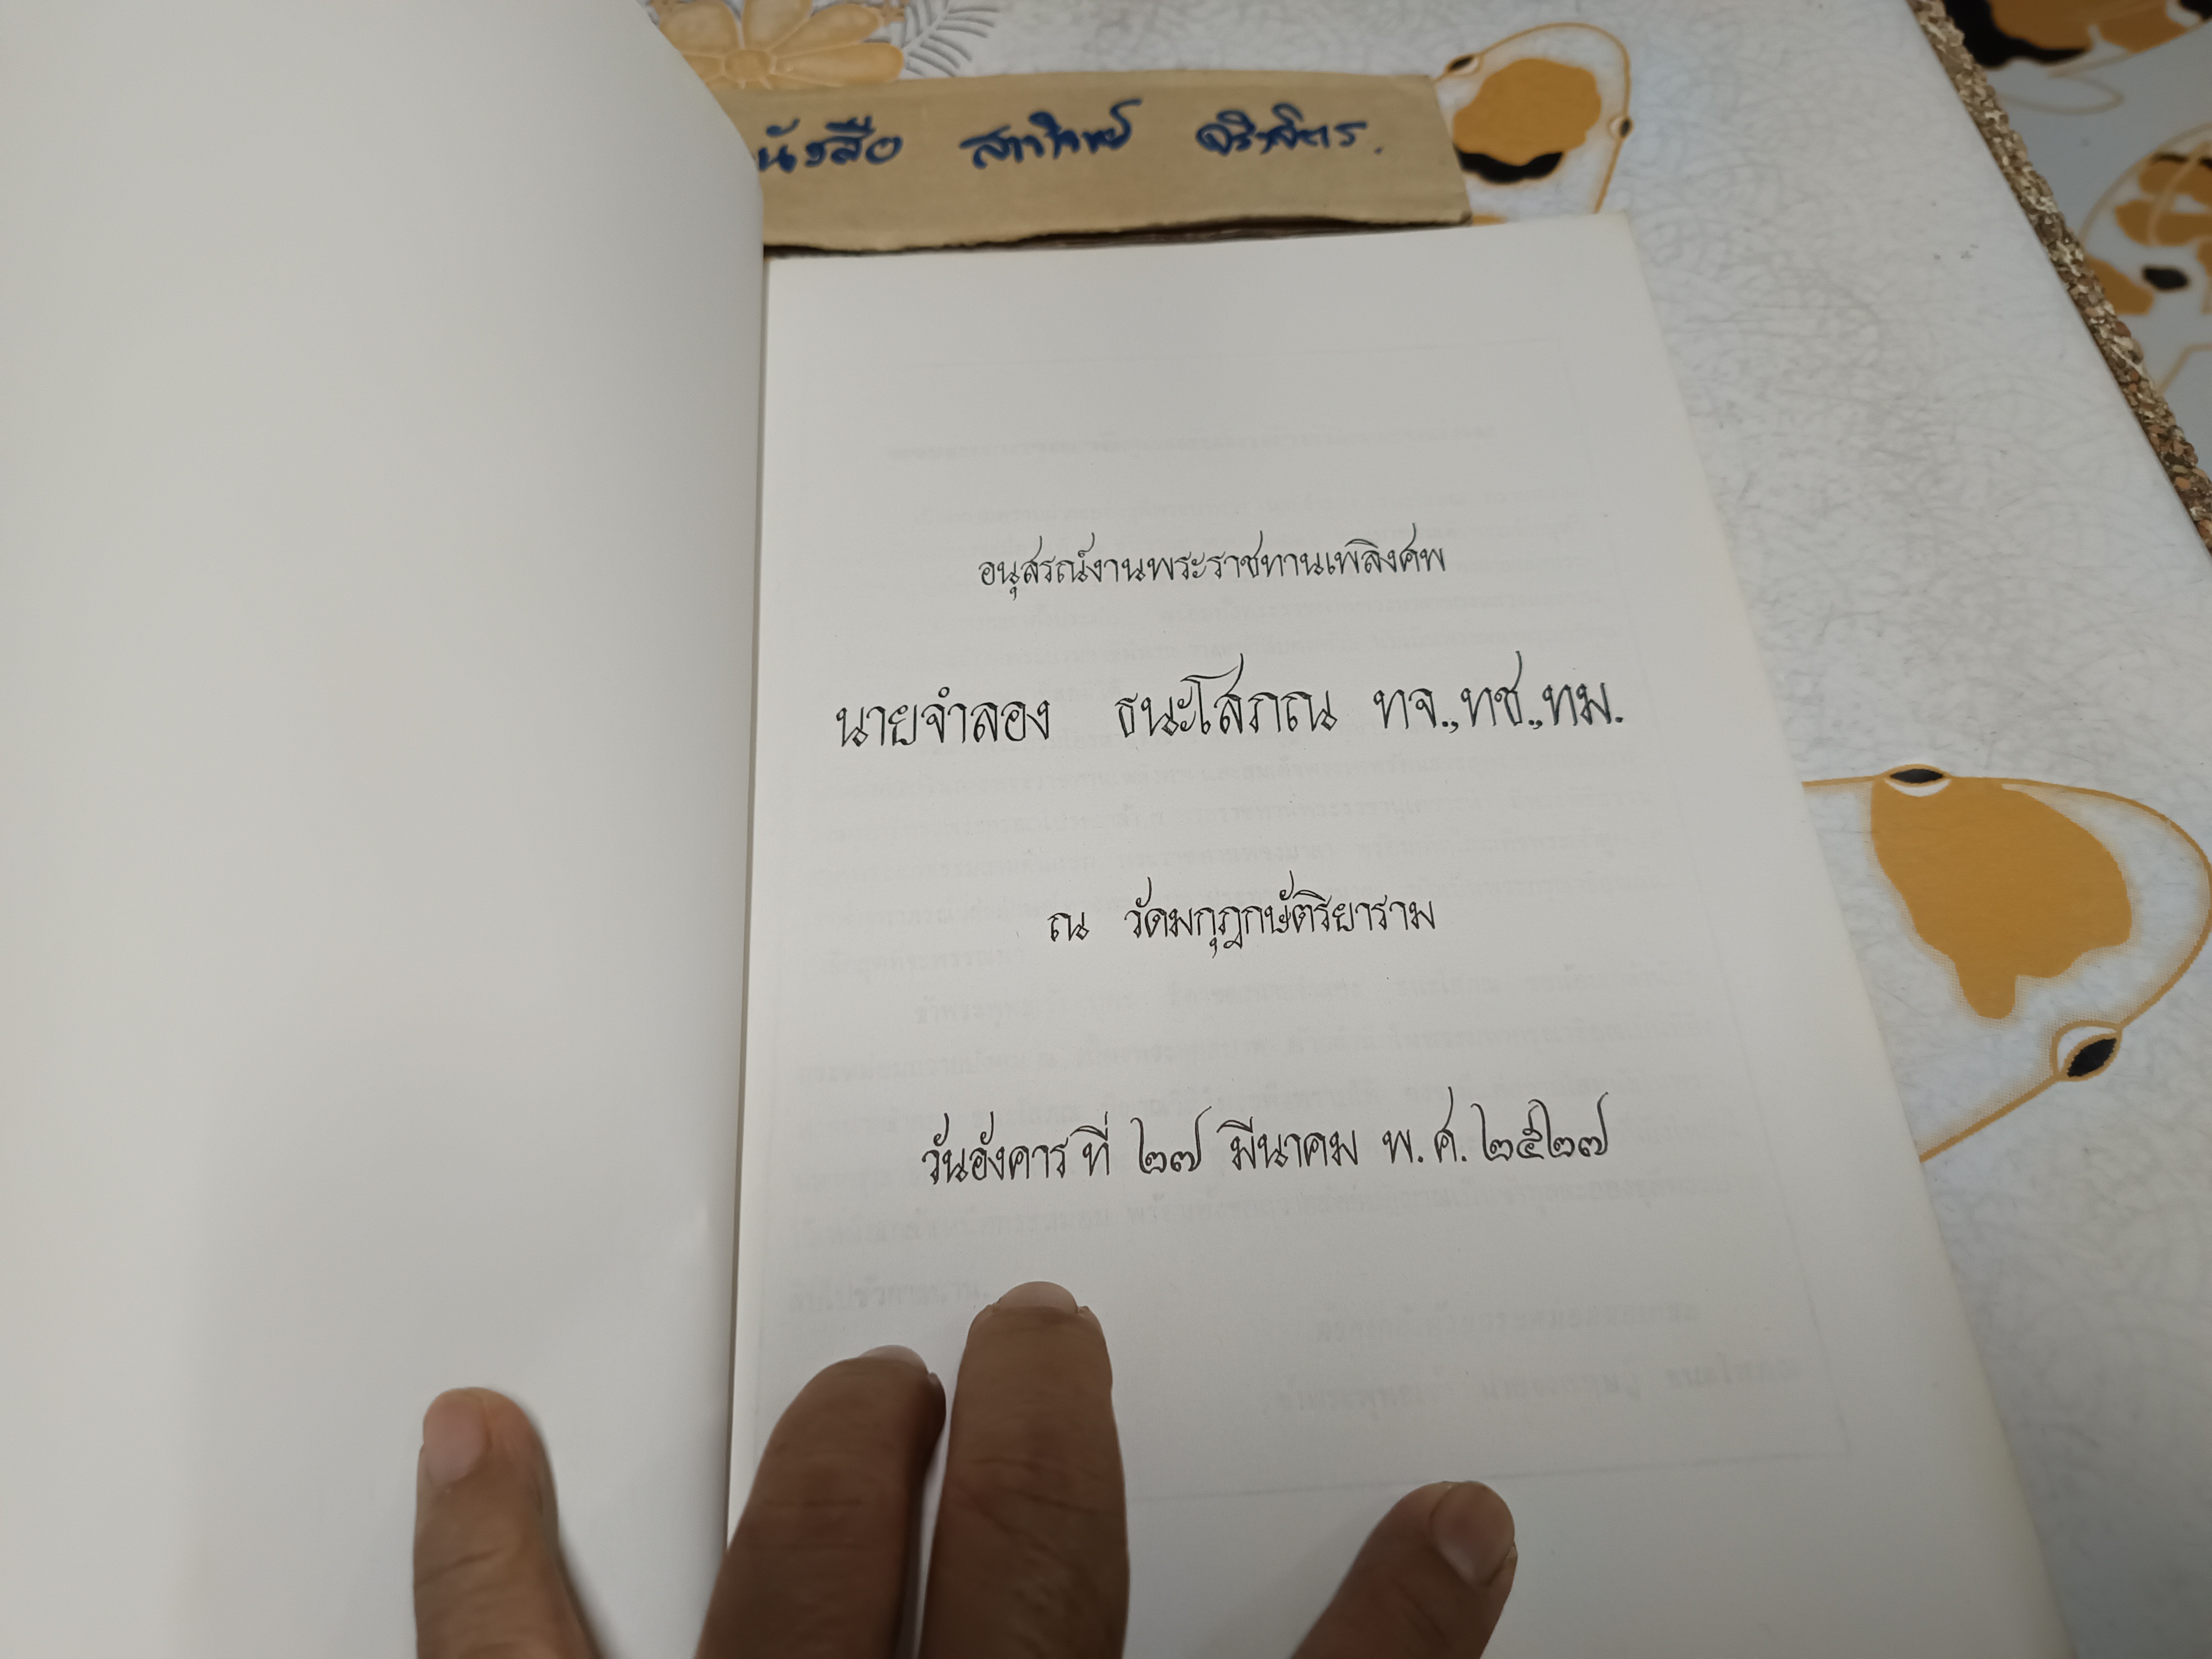 นังสือ
อนุสรณ์งานพระราชทานเพลิงศพ
นายจำลอง ธนะโสภณ ทจ.,ทช.,ทม.
ณ วัดมกุฎกษัตริยาราม
วันอังคารที่ ๒๗ มีนาคม พ.ศ.๒๕๒๗